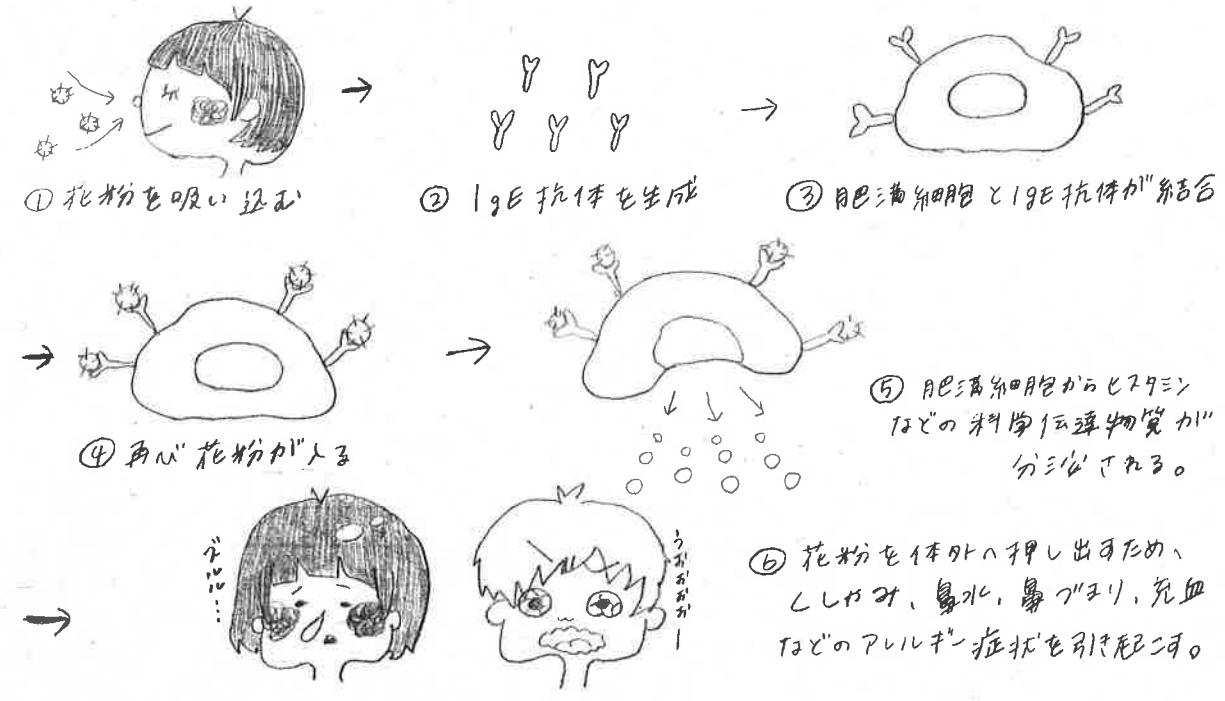 ① 花粉を吸い込む
② IgE抗体を生成
③ 肥満細胞とIgE抗体が結合
④ 再び花粉が入る
⑤ 肥満細胞からヒスタミン
などの科学伝達物質が
分泌される。
ズルルル…
うおおおおー
⑥ 花粉を体外へ押し出すため、
くしゃみ、鼻水、鼻づまり、充血
などのアレルギー症状を引き起こす。